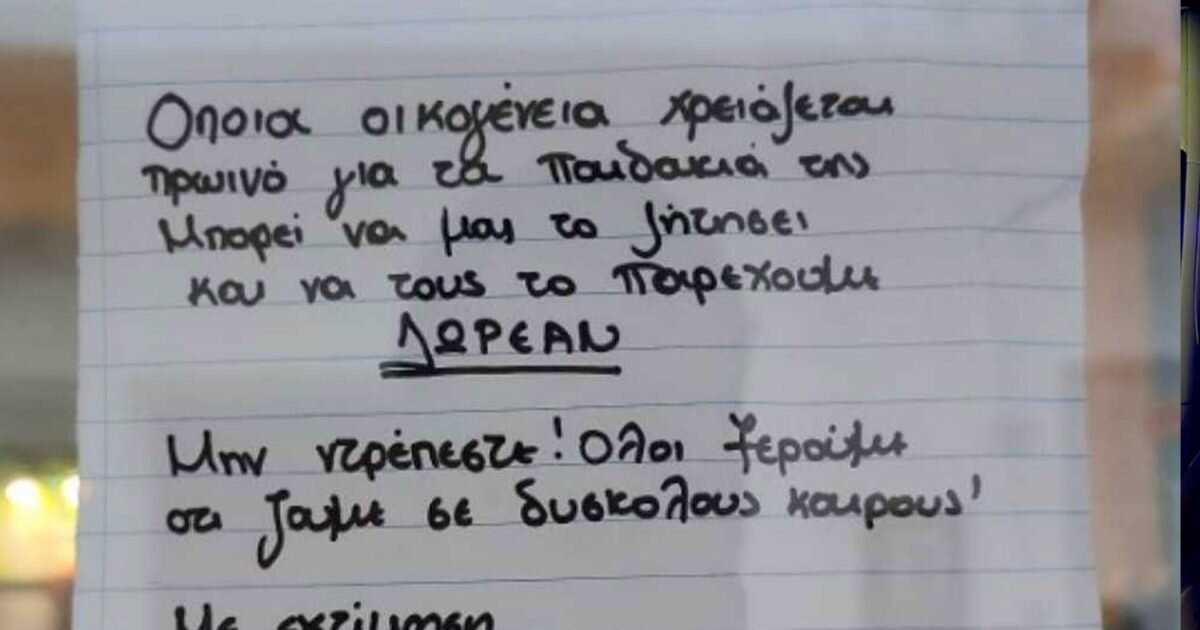 Οποια οικογένεια χρειάζεται
πρωινό για τα παιδακιά της
Μπορεί να μας το ζήτησει
και να τους το παρεχουμε
ΔΩΡΕΑΝ
Μην ντρέπεστε! Ολοι ξεροúμε
οτι ζουμε σε δυσκολους καιρους'
Με εκτίμηση